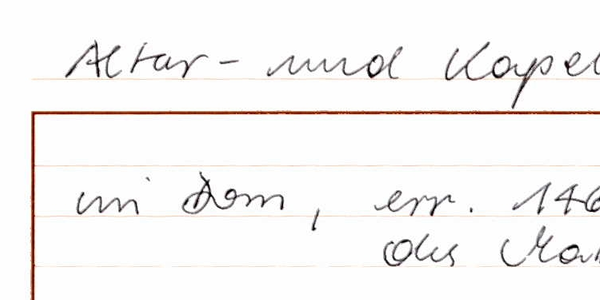 Altar- und Kapel
im Dom, err. 146
des Mar